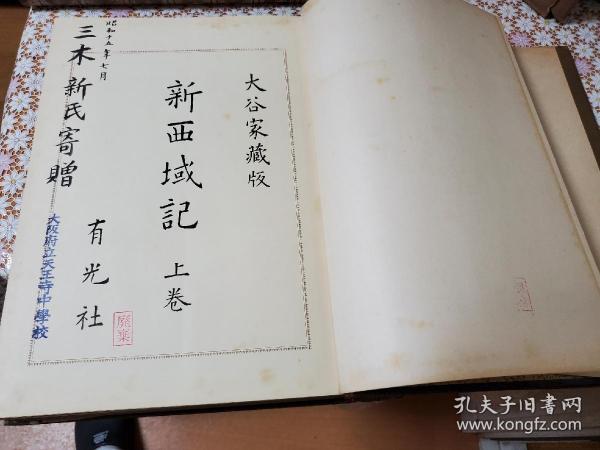 大谷家藏版
新西域記 上卷
有光社
廢棄
昭和十五年七月
三木新氏寄贈
大阪府立天王寺中學校
孔夫子旧书网
www.kongfz.com